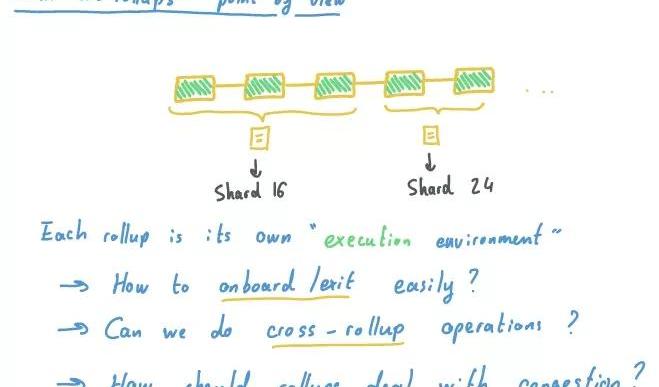 rollups point of view
...
Shard 16
Shard 24
Each rollup is its own "execution environment"
→ How to onboard/exit easily?
→ Can we do cross-rollup operations?
→ How should rollups deal with congestion?